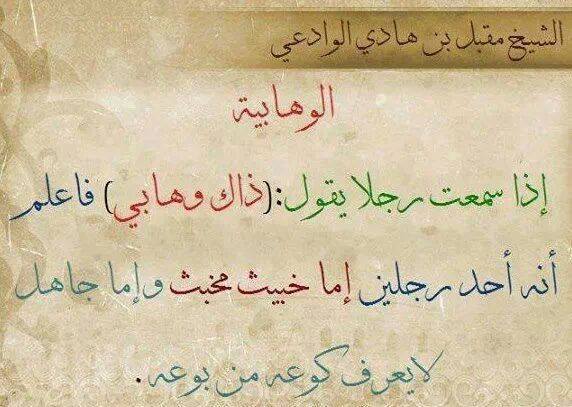 الشيخ مقبل بن هادي الوادعي
الوهابية
إذا سمعت رجلا يقول:(ذاك وهابي) فاعلم
أنه أحد رجلين إما خبيث مخبث وإما جاهل
لايعرف كوعه من بوعه.